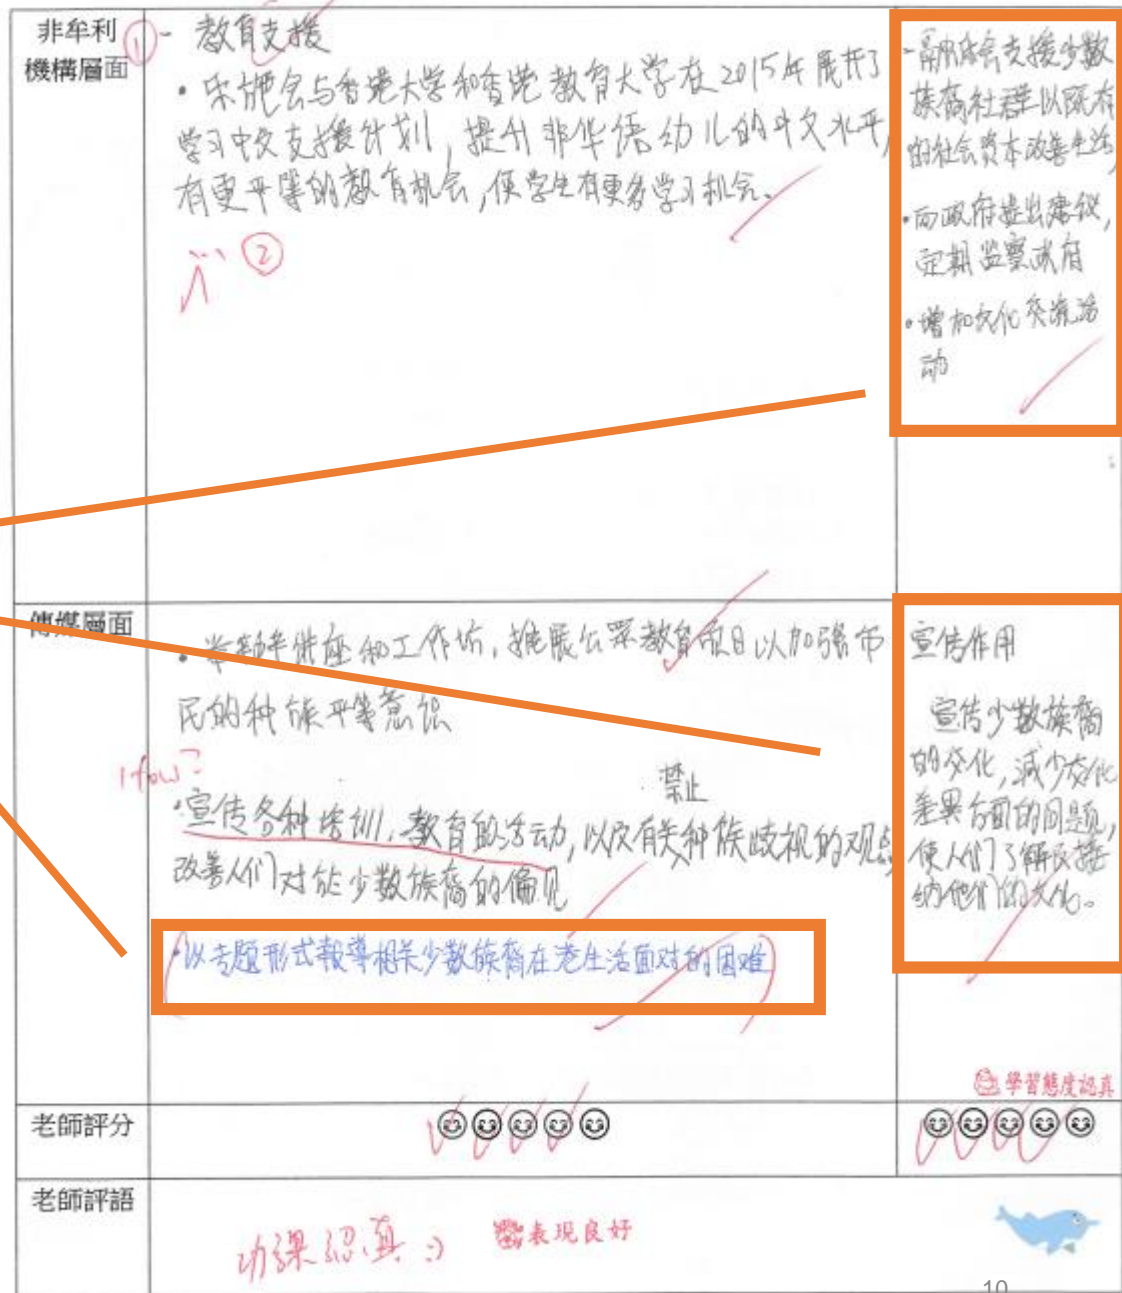 非牟利
機構層面
① - 教育支援
• 乐施会与香港大学和香港教育大学在2015年展开了
学习中文支援计划，提升非华语幼儿的中文水平，
有更平等的教育机会，使学生有更多学习机会。
②
会支援少数
族裔社群以既有
的社会资本改善生活，
•向政府提出建议，
定期监察政府
•增加文化交流活
动
傳媒層面
• 讲座和工作坊，推展公眾教育项目以加强市
民的种族平等意识
How?
禁止
•宣传各种培训、教育的活动，以及有关种族歧视的观点
改善人们对於少数族裔的偏见
•以专题形式報導相关少数族裔在港生活面对的困难
宣传作用
宣传少数族裔
的文化，减少文化
差異方面的问题，
使人们了解及接
纳他们的文化。
學習態度認真
老師評分
老師評語
功課認真 :)
表現良好
10